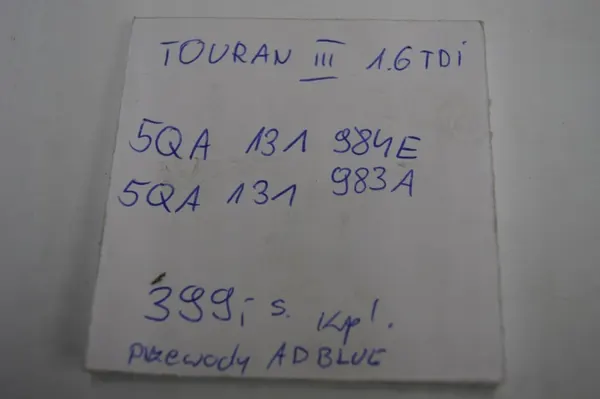 TOURAN III 1.6 TDi
5QA 131 984E
5QA 131 983A
399,- s. kpl.
przewody ADBLUE